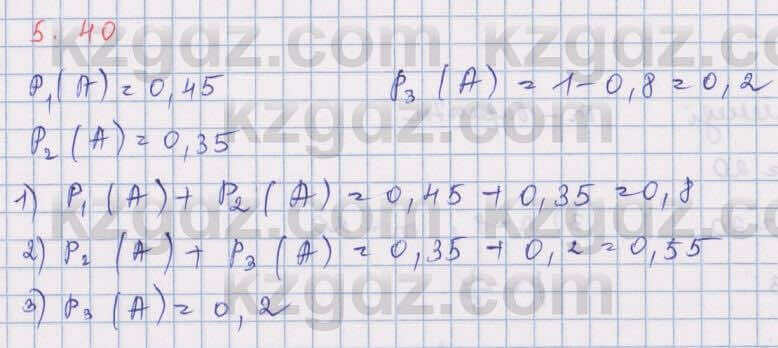 5.40
P₁(A) = 0,45
P₃(A) = 1 - 0,8 = 0,2
P₂(A) = 0,35
1) P₁(A) + P₂(A) = 0,45 + 0,35 = 0,8
2) P₂(A) + P₃(A) = 0,35 + 0,2 = 0,55
3) P₃(A) = 0,2
kzgdz.com
kzgdz.com
kzgdz.com
kzgdz.com